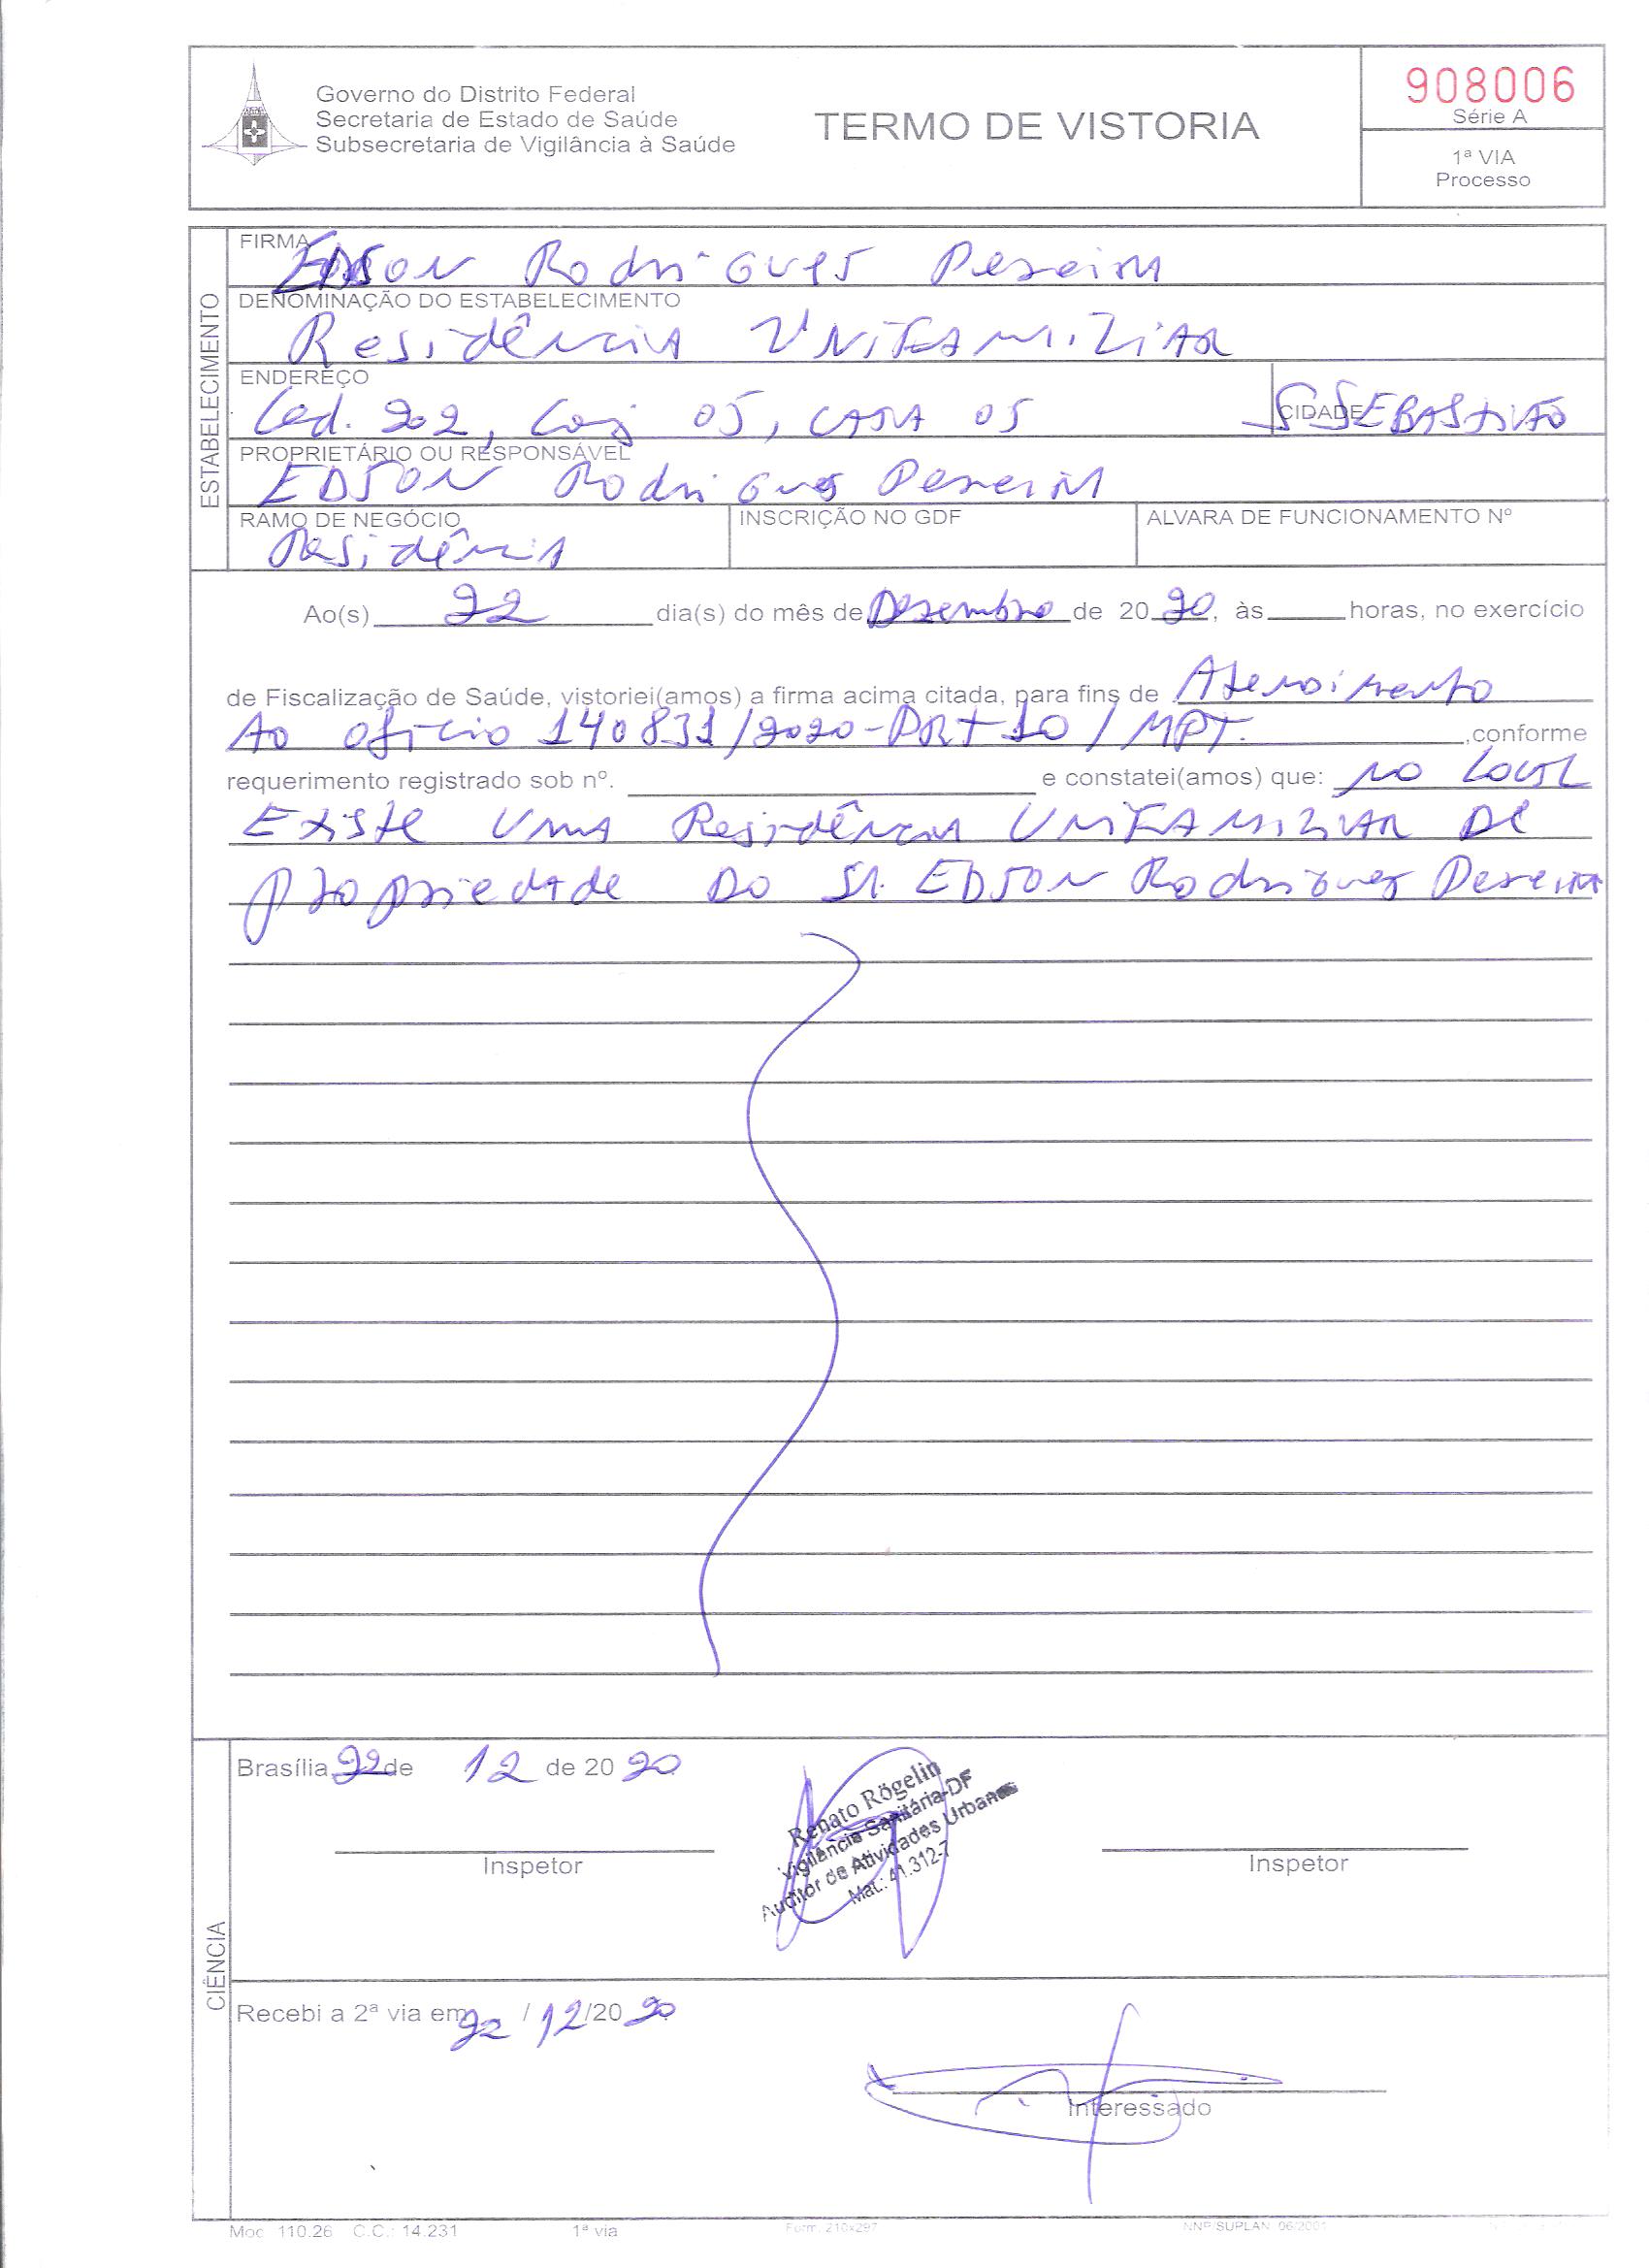 Governo do Distrito Federal
Secretaria de Estado de Saúde
Subsecretaria de Vigilância à Saúde
TERMO DE VISTORIA
908006
Série A
1ª VIA
Processo
ESTABELECIMENTO
FIRMA
EDSON Rodrigues Pereira
DENOMINAÇÃO DO ESTABELECIMENTO
Residência UNIFAMILIAR
ENDEREÇO
202, Conj 05, CASA 05
CIDADE
S SEBASTIÃO
PROPRIETÁRIO OU RESPONSÁVEL
EDSON Rodrigues Pereira
RAMO DE NEGÓCIO
Residência
INSCRIÇÃO NO GDF
ALVARA DE FUNCIONAMENTO Nº
Ao(s) 22 dia(s) do mês de Dezembro de 20 20, às horas, no exercício
de Fiscalização de Saúde, vistoriei(amos) a firma acima citada, para fins de Atendimento
Ao ofício 140831/2020-PRT10/MPT. ,conforme
requerimento registrado sob nº. e constatei(amos) que: no Local
Existe uma Residência UNIFAMILIAR de
propriedade do Sr. EDSON Rodrigues Pereira
CIÊNCIA
Brasília 22 de 12 de 20 20
Renato Rögelin
Vigilância Sanitária-DF
Auditor de Atividades Urbanas
Mat.: 41.312-7
Inspetor
Inspetor
Recebi a 2ª via em 22 / 12/20 20
Interessado
Moc 110.26 C.C.: 14.231 1ª via Form. 210x297